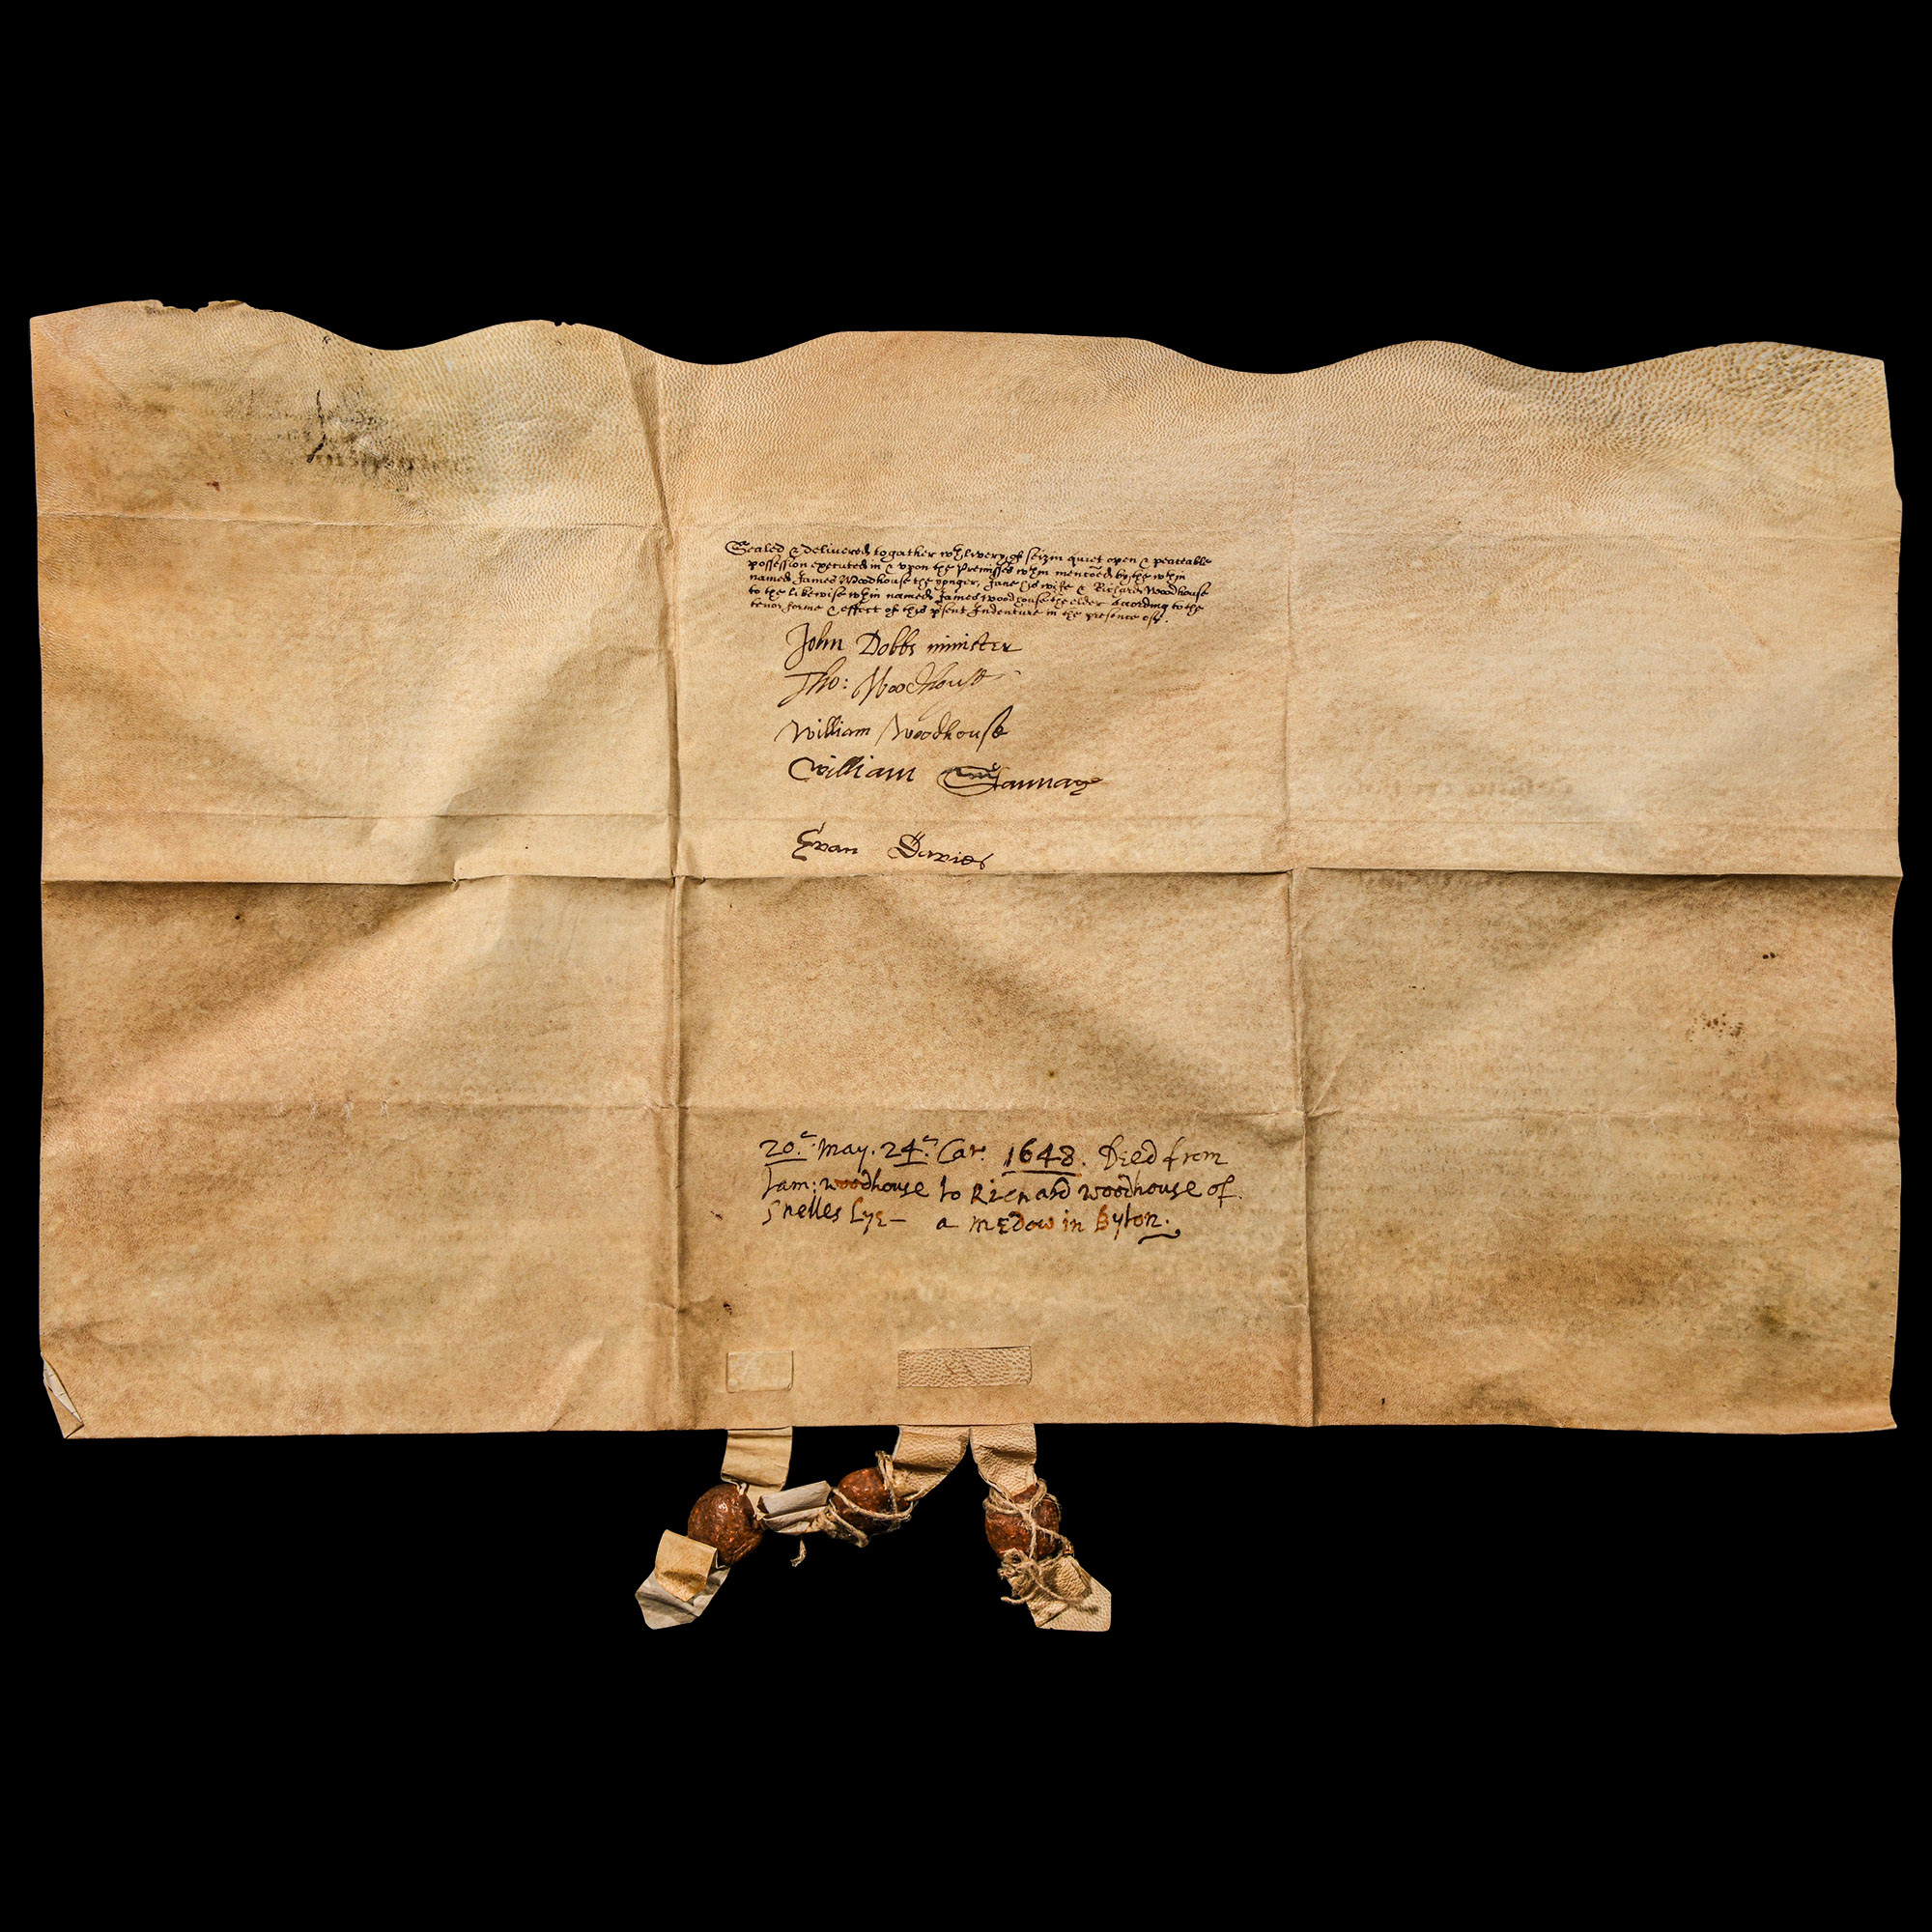 Sealed & delivered togather wth livery of seizin quiet open & peaceable
possession executed in & upon the Premisses wthin mentoed by the wthin
named James Woodhouse the yonger, Jane his wife & Richard Woodhouse
to the likewise wthin named James Woodhouse the elder Acording to the
tenor forme & effect of this psent Indenture in the presence off.
John Dobbs minister
Tho: Woodhouse
William Woodhouse
William
Evan Davies
20.e May. 24.e Car. 1648. Deed from
Jam: woodhouse to Richard woodhouse of.
Snelles Lye — a medow in Byton.